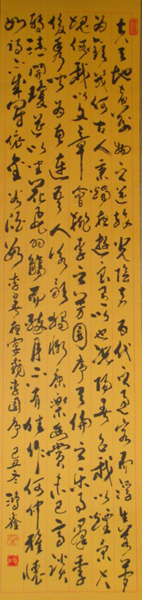 夫天地者萬物之逆旅光陰者百代之過客而浮生若夢
為歡幾何古人秉燭夜遊良有以也況陽春召我以煙景大
塊假我以文章會桃李之芳園序天倫之樂事群季
俊秀皆為惠連吾人詠歌獨慚康樂幽賞未已高談
轉清開瓊筵以坐花飛羽觴而醉月不有佳作何伸雅懷
如詩不成罰依金谷酒數 李白春夜宴桃李園序 己丑冬